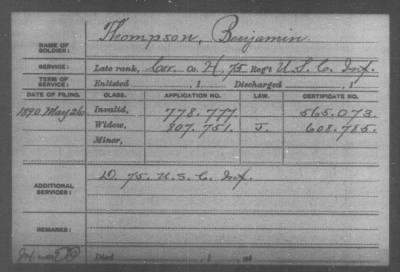 NAME OF SOLDIER: Thompson, Benjamin
SERVICE: Late rank, Cor. Co. H, 75 Reg't U.S.C. Inf.
TERM OF SERVICE: Enlisted , 1 Discharged , 1
DATE OF FILING. CLASS. APPLICATION NO. LAW. CERTIFICATE NO.
1890 May 26 Invalid, 778.777 565.073.
Widow, 807.751. J. 608.785.
Minor,
ADDITIONAL SERVICES: D. 75. U.S.C. Inf.
REMARKS:
Died , 1 , at